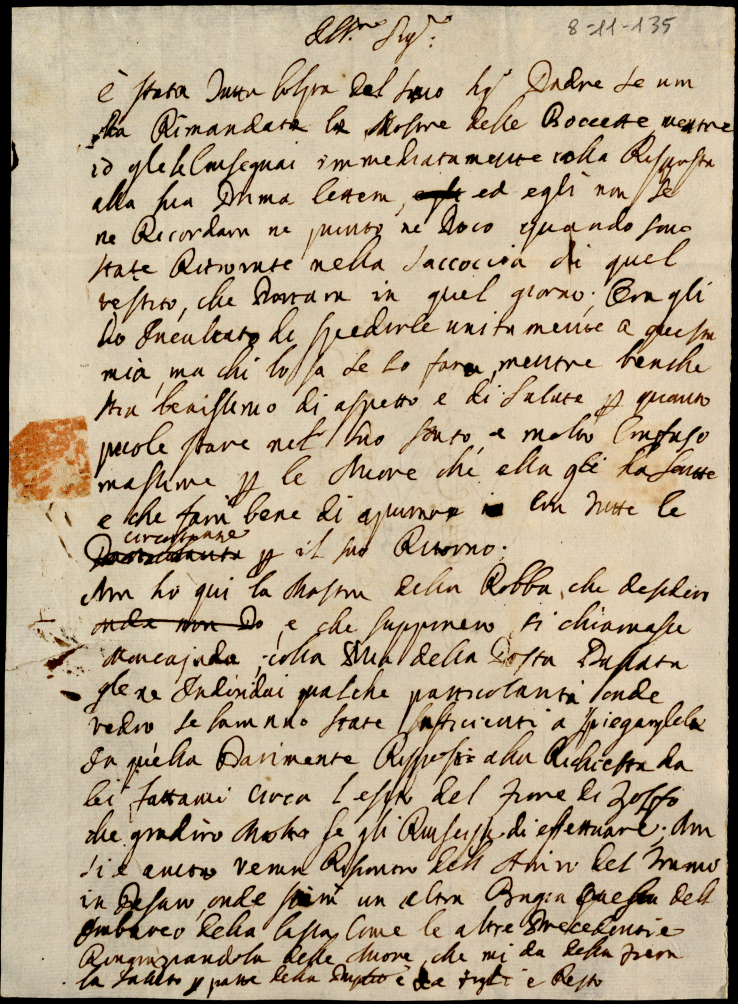 8-11-135
Ill.mo Sig.r
È stata tutta colpa del suo Sig.r Padre se non
ha Rimandate le Mostre delle Boccette, mentre
io gle le Consegnai immediatamente colla Risposta
alla sua Prima lettera, ed egli non se
ne Recordava ne punto ne Poco quando sono
state Ritrovate nella Saccoccia di quel
vestito, che Portava in quel giorno; Ora gli
ho Inculcato di spedirle unitamente a questa
mia, ma chi lo sa se lo fara, mentre benche
stia benissimo di aspetto e di Salute p quanto
puole stare nel suo stato, e molto Confuso
massime p le Nuove che ella gli ha scritte
e che fara bene di con tutte le
circostanze p il suo Ritorno;
Non ho qui la Mostra della Robba, che desidero
onda non Do, e che supponevo si chiamasse
Moncajada; colla Mia della Posta Passata
gle ne Individuai qualche particolarità onde
vedro se saranno state sufficienti a spiegarglela
In quella Parimente Risposi alla Richiesta da
lei fattami circa l'esito del Fiore di Zolfo
che gradirò Molto se gli Riuscisse di effettuare; Non
si è ancora veruno Riscontro dell Arrivo del
in Pesaro, onde un altra questa dell
Imbarco della Cassa Come le altre Precedenti e
Ringraziandola delle Nuove, che mi da della Fiera
la Saluto p parte della e da figli e Resto